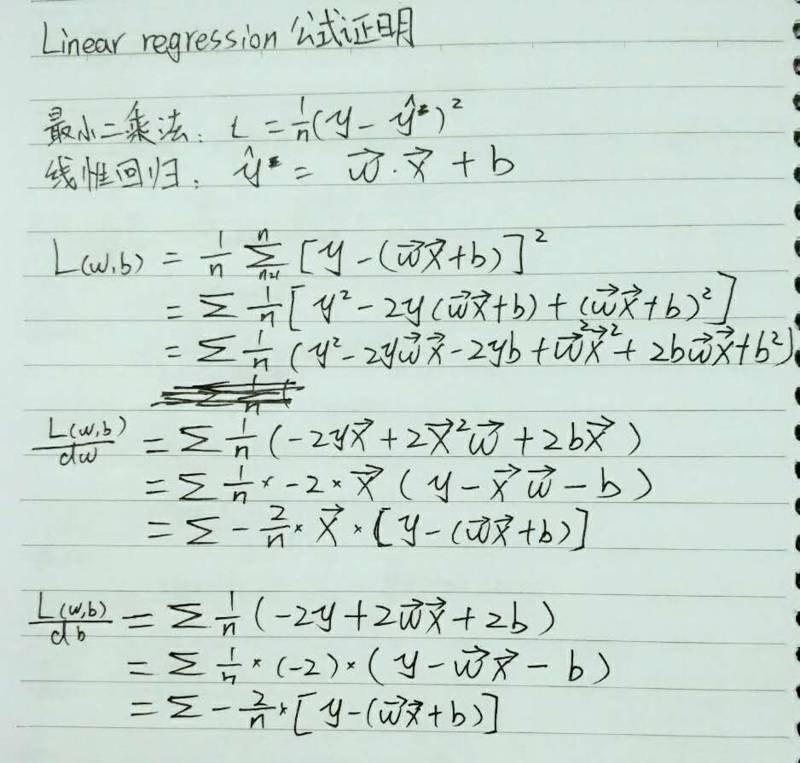 Linear regression 公式证明
最小二乘法: L = 1/n (y - ŷ)²
线性回归: ŷ = w⃗·x⃗ + b
L(w,b) = 1/n Σ [y - (w⃗x⃗+b)]²
= Σ 1/n [y² - 2y(w⃗x⃗+b) + (w⃗x⃗+b)²]
= Σ 1/n (y² - 2yw⃗x⃗ - 2yb + w⃗²x⃗² + 2bw⃗x⃗ + b²)
L(w,b)/dw = Σ 1/n (-2yx⃗ + 2x⃗²w⃗ + 2bx⃗)
= Σ 1/n * -2 * x⃗ (y - x⃗w⃗ - b)
= Σ - 2/n * x⃗ * [y - (w⃗x⃗+b)]
L(w,b)/db = Σ 1/n (-2y + 2w⃗x⃗ + 2b)
= Σ 1/n * (-2) * (y - w⃗x⃗ - b)
= Σ - 2/n * [y - (w⃗x⃗+b)]